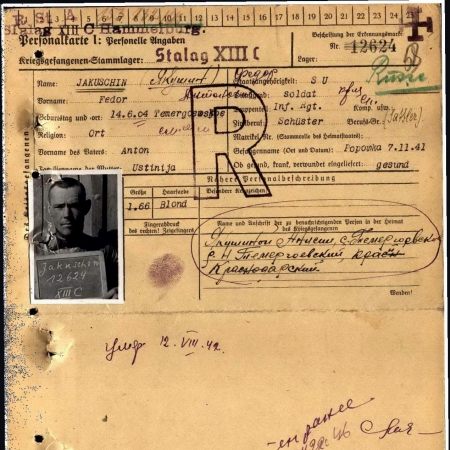 1 2 3 4 5 6 7 8 9 10 11 12 13 14 15 16 17 18 19 20 21 22 23 24 25
Stalag XIII C Hammelburg.
Personalkarte I: Personelle Angaben
Kriegsgefangenen-Stammlager: Stalag XIII C
Beschriftung der Erkennungsmarke:
Nr. 12624
Lager:
Russe
Name: JAKUSCHIN Якушин Федор
Staatsangehörigkeit: SU
Vorname: Fedor
Dienstgrad: Soldat
Geburtstag und -ort: 14.6.04 Temergowskoe
Truppenteil: Inf. Rgt. Komp. usw.
Religion: Ort
Zivilberuf: Schüster Berufs-Gr.:
Matrikel Nr. (Stammrolle des Heimatstaates):
Vorname des Vaters: Anton
Gefangennahme (Ort und Datum): Popowka 7.11.41
Familienname der Mutter: Ustinija
Ob gesund, krank, verwundet eingeliefert: gesund
R
Nähere Personalbeschreibung
Größe Haarfarbe Besondere Kennzeichen:
1.66 Blond
Fingerabdruck
des rechten! Zeigefingers
Name und Anschrift der zu benachrichtigenden Person in der Heimat
des Kriegsgefangenen
Краснодарский
Wenden!
Jakuschin
12624
XIII C
умер 12. VIII. 42.